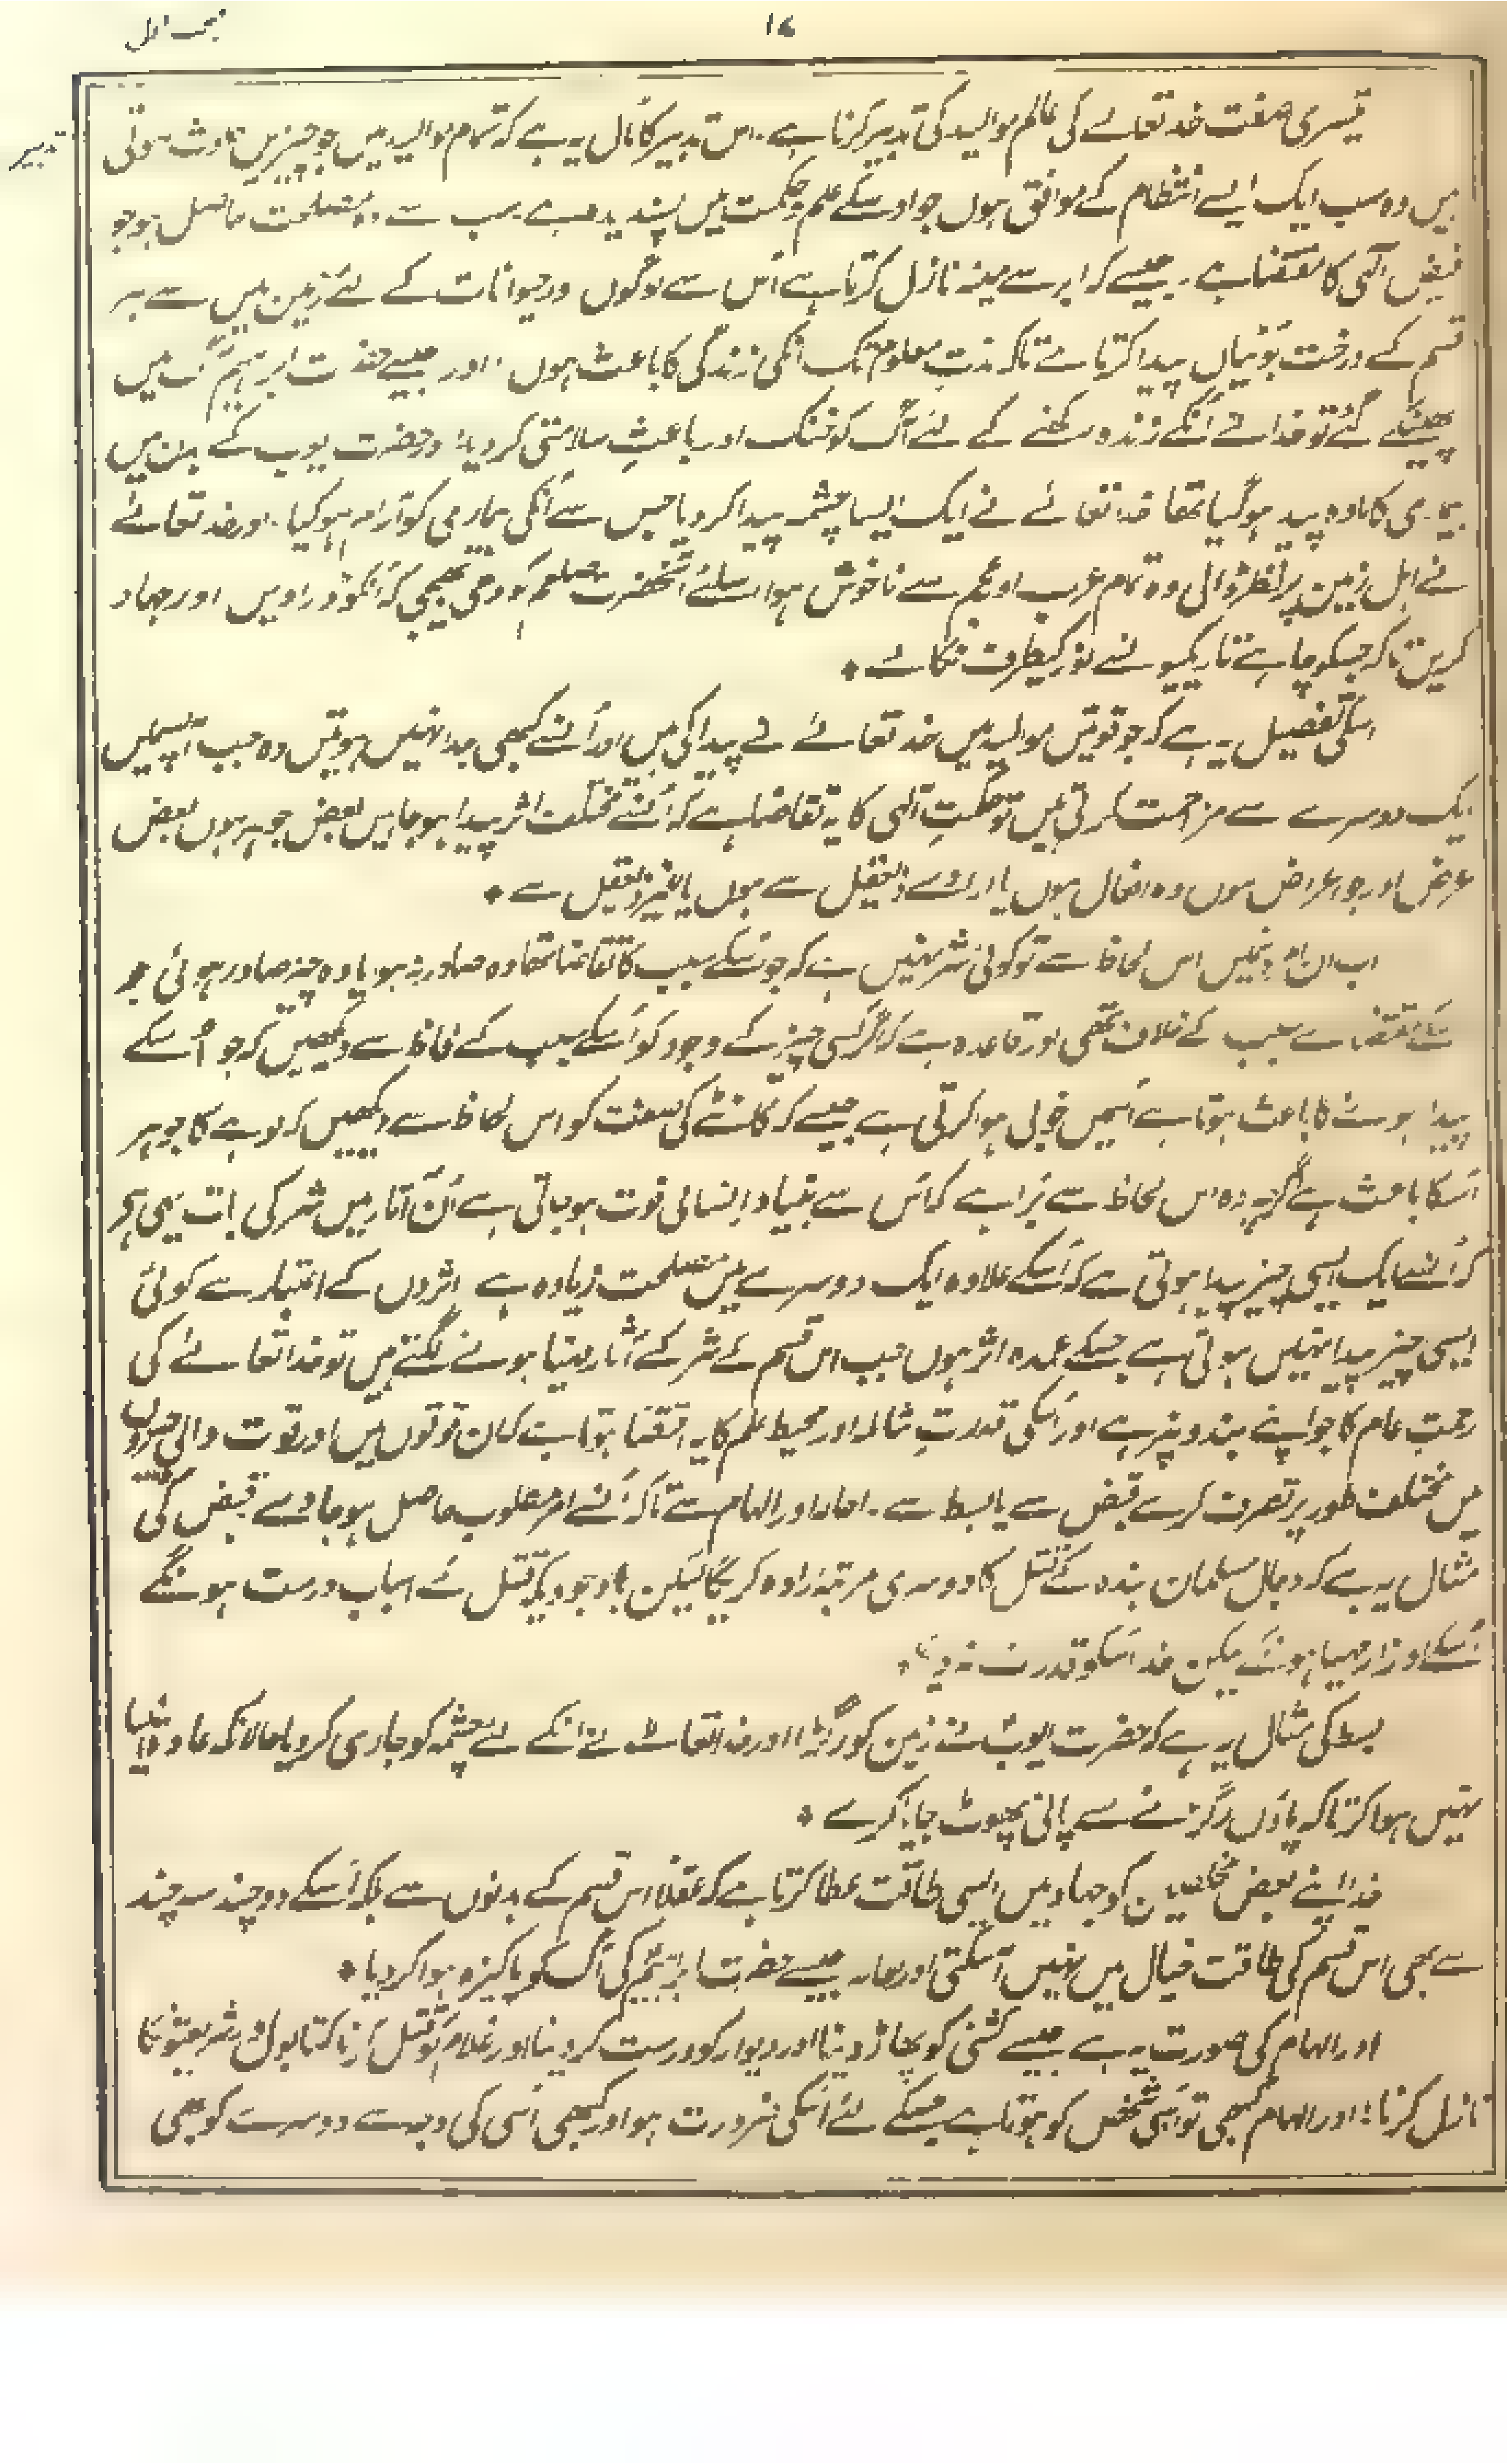 ۱۷
مبحث اول
تدبیر
تیسری صفت خداتعالے کی عالم موالید کی تدبیر کرنا ہے۔ اس تدبیر کا مآل یہ ہے کہ تمام موالید میں جو چیزیں حادث ہوتی
ہیں وہ سب ایک ایسے انتظام کے موافق ہوں جو اوسکے علم وحکمت میں پسندیدہ ہے سب سے وہ مصلحت حاصل ہو جو
فیض الٰہی کا مقتضا ہے۔ جیسے کہ ابر سے مینہ نازل کرتا ہے اُس سے لوگوں اور حیوانات کے لئے زمین میں سے ہر
قسم کے درخت بوٹیاں پیدا کرتا ہے تاکہ مدتِ معلوم تک انکی زندگی کا باعث ہوں، اور جیسے حضرت ابراہیمؑ آگ میں
پھینکے گئے تو خدا نے اُنکے زندہ رکھنے کے لئے آگ کو خنک اور باعثِ سلامتی کر دیا اور حضرت ایوب کے بدن میں
بیماری کا مادہ پیدا ہوگیا تھا خداتعالے نے ایک ایسا چشمہ پیدا کر دیا جس سے اُنکی بیماری کو آرام ہوگیا۔ اور خداتعالےٰ
نے اہل زمین پر نظر ڈالی وہ تمام عرب اور عجم سے ناخوش ہوا اسلئے آنحضرت صلعم کو وحی بھیجی کہ اُنکو ڈراویں اور جہاد
کریں تاکہ جسکو چاہے تاریکیونسے نور کیطرف نکالے ٭
اسکی تفصیل یہ ہے کہ جو قوتیں موالید میں خداتعالےٰ نے پیدا کی ہیں اور اُنسے کبھی جدا نہیں ہوتیں وہ جب آپسمیں
ایک دوسرے سے مزاحمت کرتی ہیں تو حکمتِ الٰہی کا یہ تقاضا ہے کہ اُنسے مختلف اثر پیدا ہو جاویں بعض جوہر ہوں بعض
عرض اور جو اعراض ہوں وہ افعال ہوں یا ارادے ذی العقل سے ہوں یا غیر ذی العقل سے ٭
اب ان اثرونمیں اس لحاظ سے تو کوئی شر نہیں ہے کہ جو اسکے سبب کا تقاضا تھا وہ صادر نہ ہو یا وہ چیز صادر ہوئی جو
اسکے مقتضاے سبب کے خلاف تھی اور قاعدہ ہے کہ اگر کسی چیز کے وجود کو اُسکے سبب کے لحاظ سے دیکھیں کہ جو اُسکے
پیدا ہونے کا باعث ہوتا ہے اُسمیں خوبی ہوا کرتی ہے جیسے کہ کاٹنے کی صفت کو اس لحاظ سے دیکھیں کہ لوہے کا جوہر
اُسکا باعث ہے اگرچہ وہ اس لحاظ سے بُرا ہے کہ اُس سے بنیاد انسانی فوت ہوجاتی ہے اُن آثار میں شر کی بات یہی ہے
کہ اُنسے ایک ایسی چیز پیدا ہوتی ہے کہ اُسکے علاوہ ایک دوسرے میں مصلحت زیادہ ہے اثروں کے اعتبار سے کوئی
ایسی چیز پیدا نہیں ہوتی ہے جسکے عمدہ اثر ہوں جب اس قسم کے شر کے آثار مہیا ہونے لگتے ہیں تو خداتعالےٰ کی
رحمت عام کا جو اپنے بندوںپر ہے اور اُسکی قدرتِ شاملہ اور محیط علم کا یہ اقتضا ہوتا ہے کہ ان قوتوں میں اور قوت والی چیزوں
میں مختلف طور پر تصرف کرے قبض سے یا بسط سے۔ احالہ اور الہام سے تاکہ اُنسے امر مطلوب حاصل ہو جاوے قبض کی
مثال یہ ہے کہ دجال مسلمان بندہ کے قتل کا دوسری مرتبہ ارادہ کریگا لیکن باوجودیکہ قتل کے اسباب درست ہونگے
اُسکے اوزار مہیا ہونگے لیکن خدا اُسکو قدرت نہ دیگا۔
بسط کی مثال یہ ہے کہ حضرت ایوبؑ نے زمین کو رگڑا اور خداتعالےٰ نے انکے لئے چشمہ کو جاری کر دیا حالانکہ عادۃً ایسا
نہیں ہوا کرتا کہ پاؤں رگڑنے سے پانی پھوٹ جایا کرے ٭
خدا اپنے بعض مخلصین کو جہاد میں ایسی طاقت عطا کرتا ہے کہ عقلاً اس قسم کے بدنوں سے بلکہ اُسکے دوچند سہ چند
سے بھی اس قسم کی طاقت خیال میں نہیں آسکتی اور احالہ جیسے حضرت ابراہیمؑ کی آگ کو پاکیزہ ہوا کر دیا ٭
اور الہام کی صورت یہ ہے جیسے کشتی کو پھاڑ دینا اور دیوار کو درست کر دینا اور غلام کو قتل کرنا کتابوں اور شریعتونکا
نازل کرنا؛ اور الہام کبھی تو اُسی شخص کو ہوتا ہے جسکے لئے اُسکی ضرورت ہو اور کبھی اُسی کی وجہ سے دوسرے کو بھی